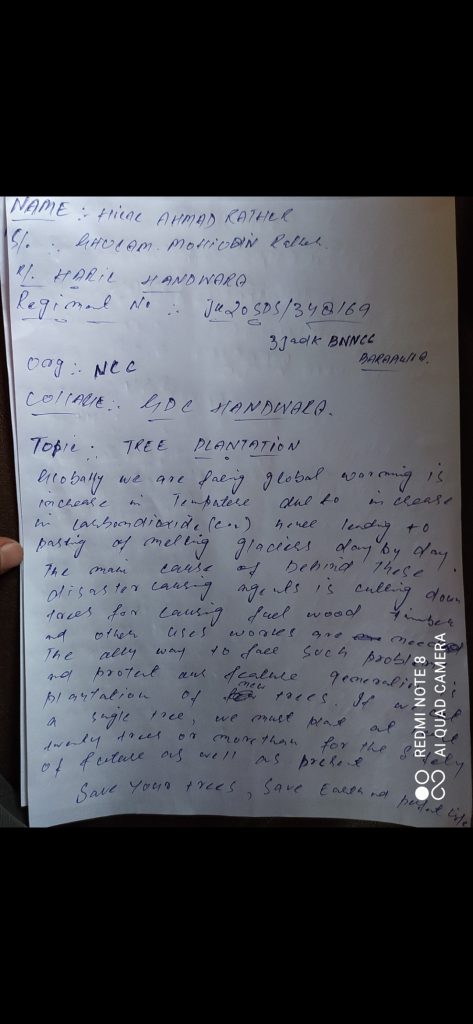 NAME :- Hilal AHMAD RATHER
S/. :- GHULAM. MOHIUDIN Rather
R/. HARIL HANDWARA
Regimental No :- JK20SDS/342169
3 J&K BNNCC
BARAMULLA.
Org :- NCC
COLLAGE :- GDC HANDWARA.
Topic :- TREE PLANTATION
Globally we are facing global warming is
increase in Tempature due to increase
in carbondioxide (Co2) hence leading to
of melting glaciers day by day
The main cause of behind these
disaster causing agents is cutting down
trees for causing fuel wood timber
and other uses works are
The only way to face such problem
and protect our feature generation is
plantation of new trees. If we cut
a single tree, we must plant at least
twenty trees or morethan for the safety
of feature as well as present
Save Your trees, Save Earth and life
REDMI NOTE 8
AI QUAD CAMERA